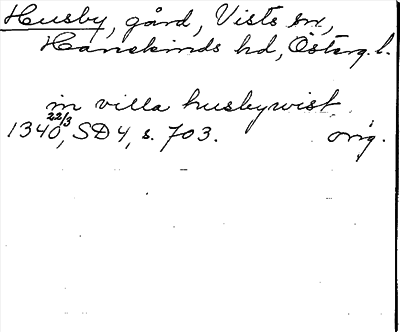 Husby, gård, Vists sn,
Hanekinds hd, Österg. l.
in villa husbywist
1340 22/3, SD 4, s. 703. orig.